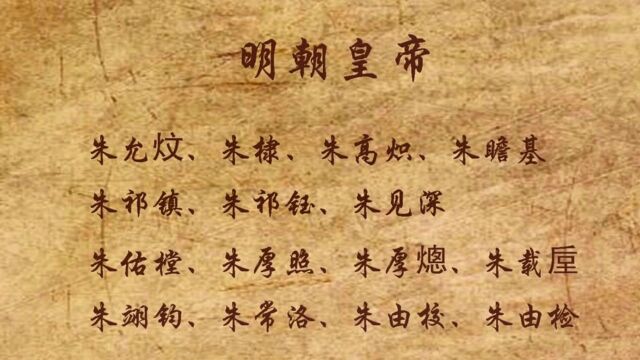 明朝皇帝
朱允炆、朱棣、朱高炽、朱瞻基
朱祁镇、朱祁钰、朱见深
朱佑樘、朱厚照、朱厚熜、朱载垕
朱翊钧、朱常洛、朱由校、朱由检